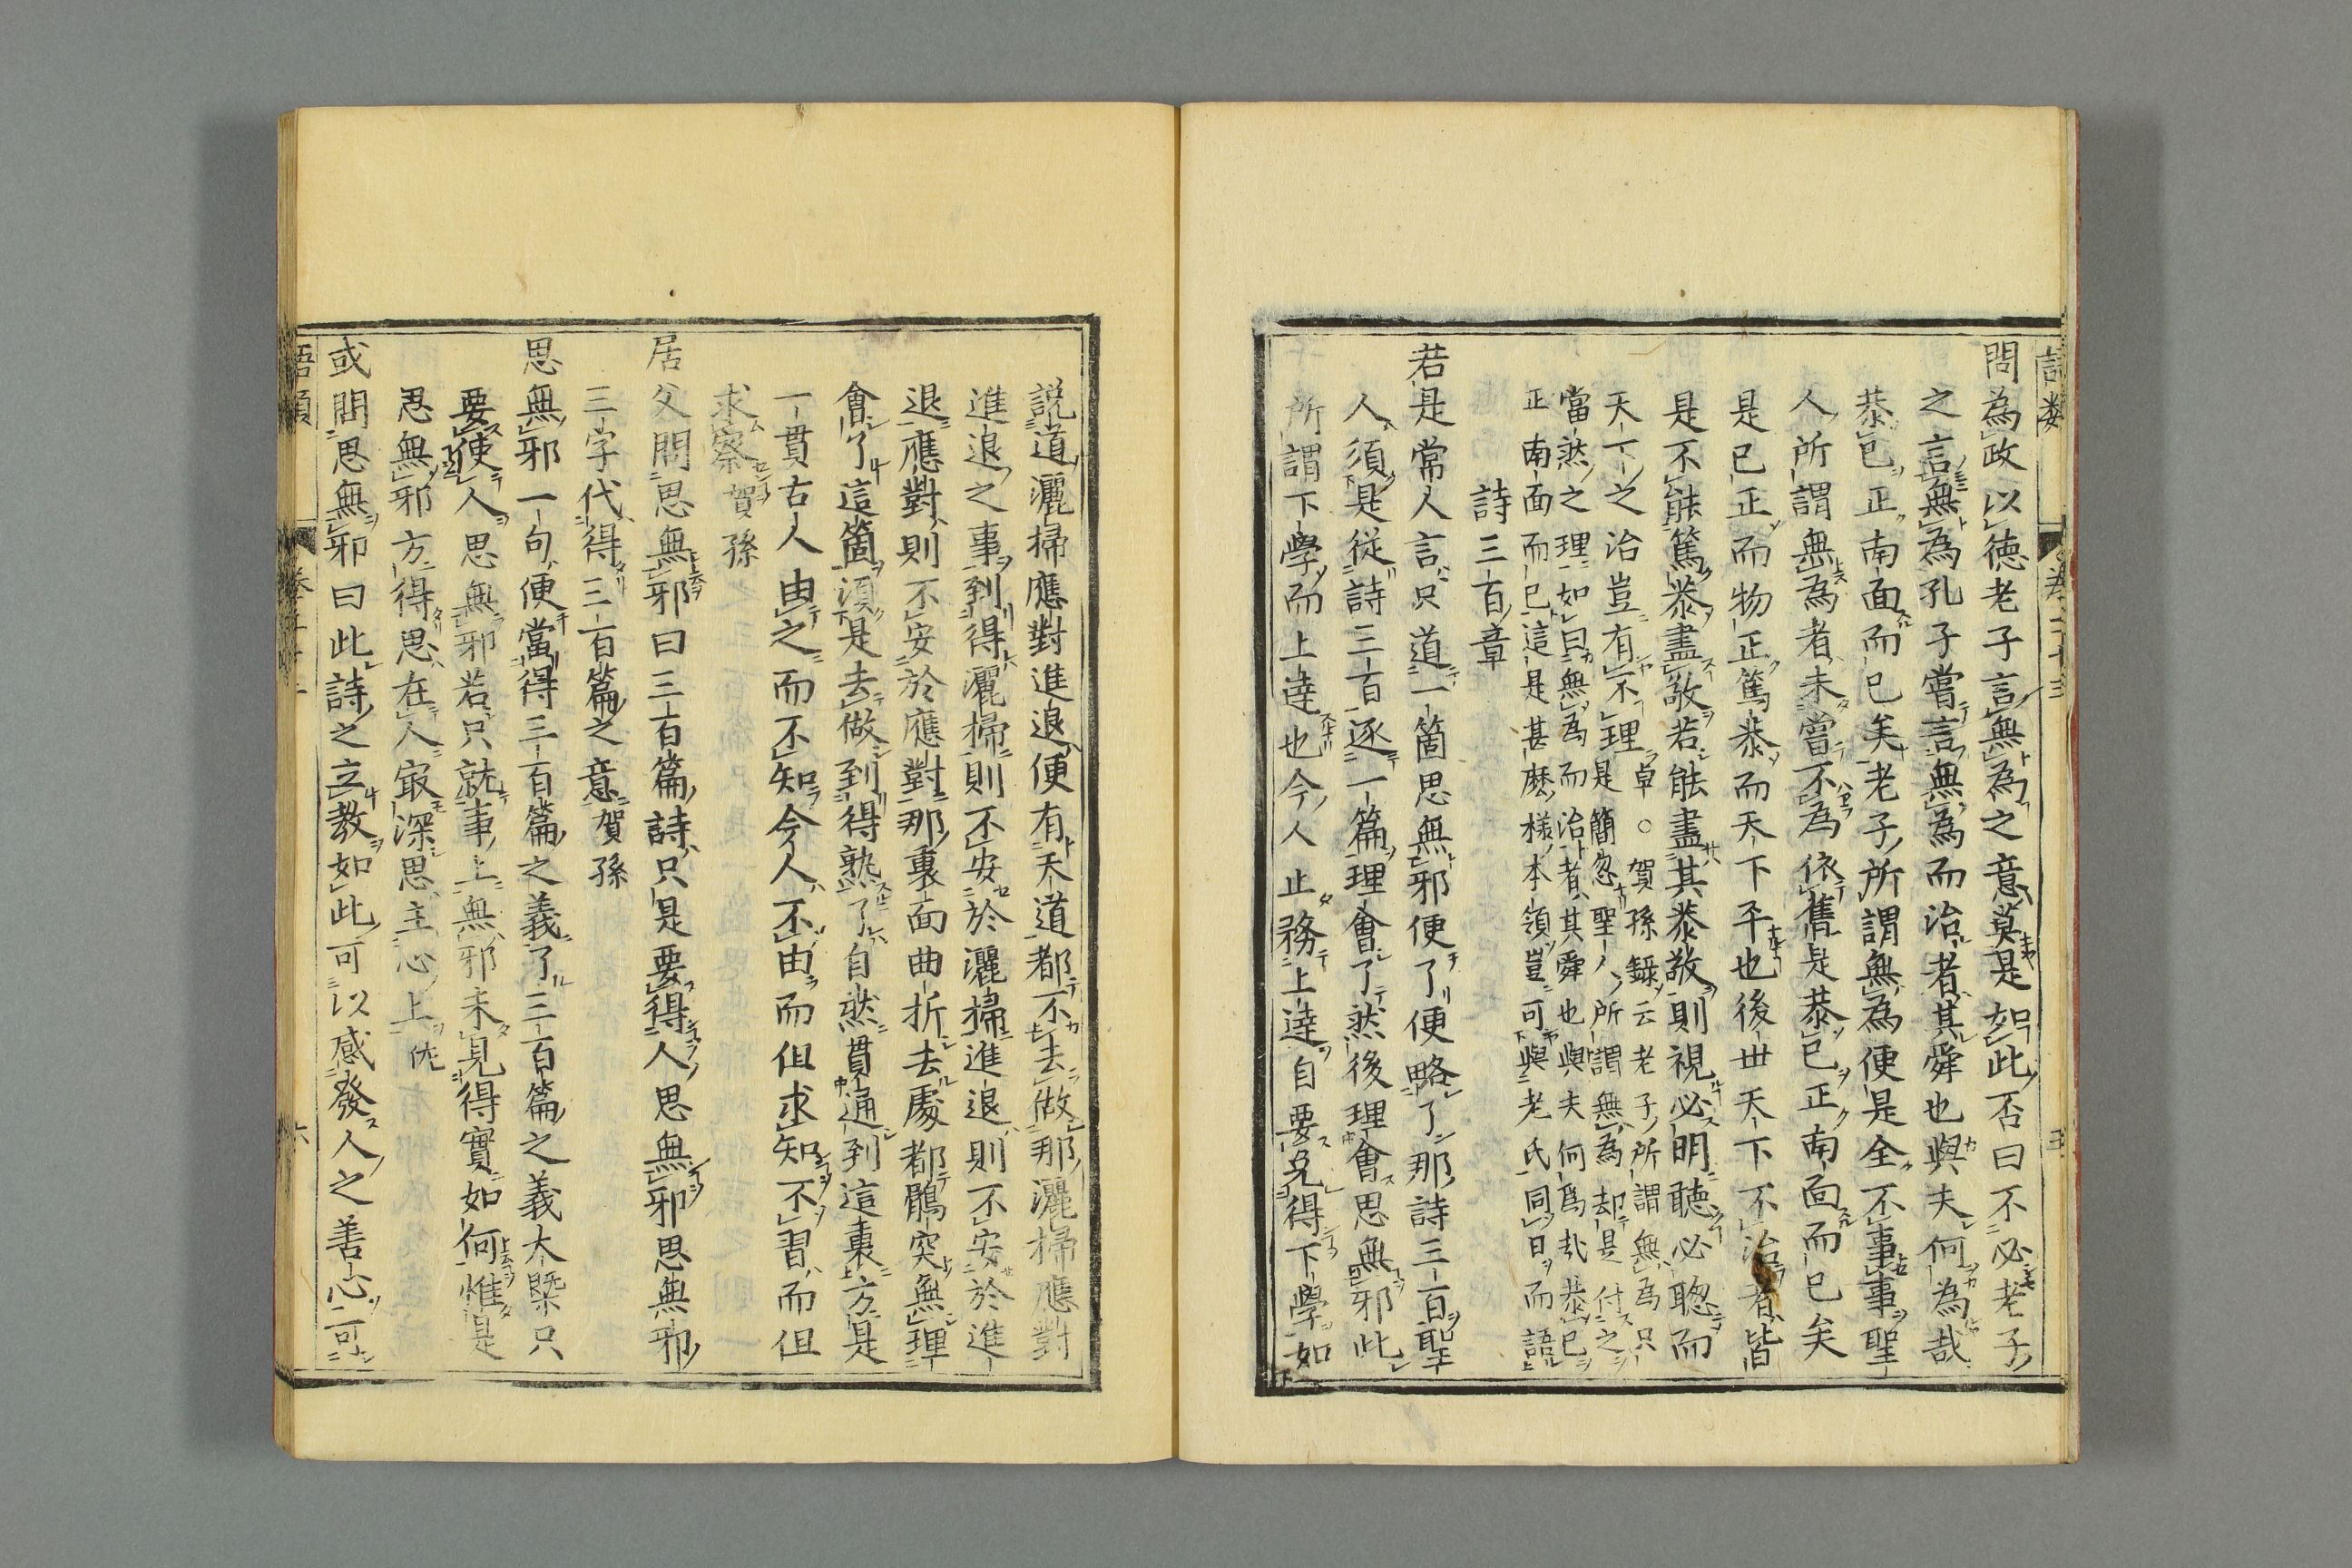 語類 卷二十三 五
問為政以徳老子言無為之意莫是如此否曰不必老子
之言無為孔子嘗言無為而治者其舜也與夫何為哉
恭已正南面而已矣老子所謂無為便是全不事事聖
人所謂無為者未嘗不為依舊是恭已正南面而已矣
是已正而物正篤恭而天下平也後世天下不治者皆
是不能篤恭盡敬若能盡其恭敬則視必明聽必聰而
天下之治豈有不理卓○賀孫録云老子所謂無為只
是簡忽聖人所謂無為却是付之
當然之理如曰無為而治者其舜也與夫何爲哉恭已
正南面而已這是甚麽様本領豈可與老氏同日而語
詩三百章
若是常人言只道一箇思無邪便了便略了那詩三百聖
人須是從詩三百逐一篇理會了然後理會思無邪此
所謂下學而上達也今人止務上達自要免得下學如
説道灑掃應對進退便有天道都不去做那灑掃應對
進退之事到得灑掃則不安於灑掃進退則不安於進
退應對則不安於應對那裏面曲折去處都鶻突無理
會了這箇須是去做到得熟了自然貫通到這裏方是
一貫古人由之而不知今人不由而但求知不習而但
求察賀孫
居父問思無邪曰三百篇詩只是要得人思無邪思無邪
三字代得三百篇之意賀孫
思無邪一句便當得三百篇之義了三百篇之義大槩只
要使人思無邪若只就事上無邪未見得實如何惟是
思無邪方得思在人㝡深思主心上佐
或問思無邪曰此詩之立教如此可以感發人之善心可
語類 卷二十三 六